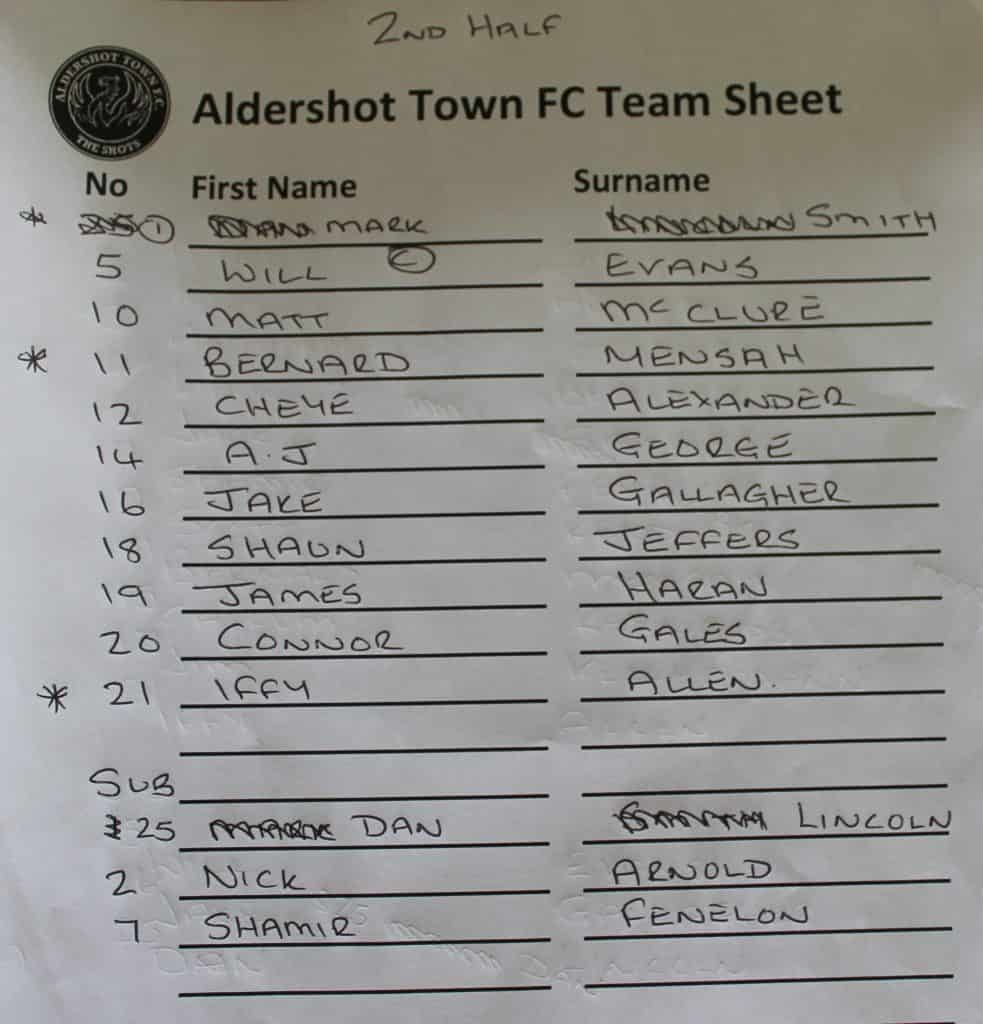 2ND HALF
ALDERSHOT TOWN FC
THE SHOTS
Aldershot Town FC Team Sheet
No First Name Surname
* 1 MARK SMITH
5 WILL C EVANS
10 MATT McCLURE
* 11 BERNARD MENSAH
12 CHEYE ALEXANDER
14 A.J GEORGE
16 JAKE GALLAGHER
18 SHAUN JEFFERS
19 JAMES HARAN
20 CONNOR GALES
* 21 IFFY ALLEN.
SUB
25 DAN LINCOLN
2 NICK ARNOLD
7 SHAMIR FENELON